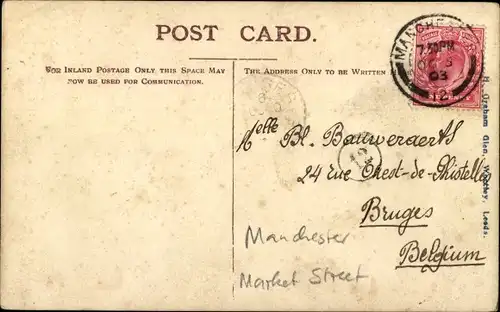 POST CARD.
FOR INLAND POSTAGE ONLY THIS SPACE MAY
NOW BE USED FOR COMMUNICATION.
THE ADDRESS ONLY TO BE WRITTEN
MANCHESTER
7.30PM
03
Melle Bl. Bauweraerts
24 rue Ouest-de-Ghistelles
Bruges
Belgium
Manchester
Market Street
H. Graham Glen, Wortley, Leeds.